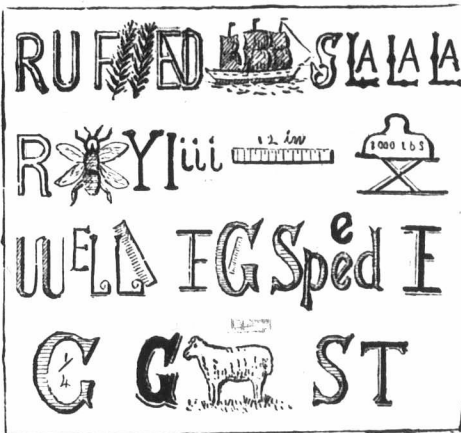 RU F ED S LA LA LA
R YI iii 12 in LBS
WELL I G Sped e I
G 1/4 G ST